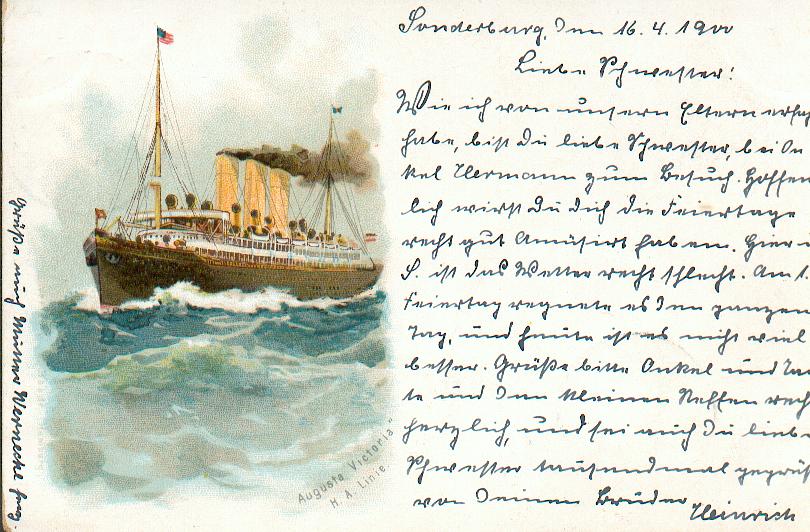 Sonderburg, den 16.4.1900
Liebe Schwester!
Wie ich von unsern Eltern erfah
habe, bist Du liebe Schwester, bei On
kel Hermann zum Besuch. Hoffen
lich wirst Du Dich die Feiertage
recht gut amüsirt haben. Hier i
S. ist das Wetter recht schlecht. Am 1.
Feiertag regnete es den ganzen
Tag, und heute ist es nicht viel
besser. Grüße bitte Onkel und Tan
te und den kleinen Neffen rech
herzlich, und sei auch Du liebe
Schwester tausendmal gegrüß
von Deinem Bruder
Heinrich
Grüße auch Mutter
"Augusta Victoria"
H. A. Linie.